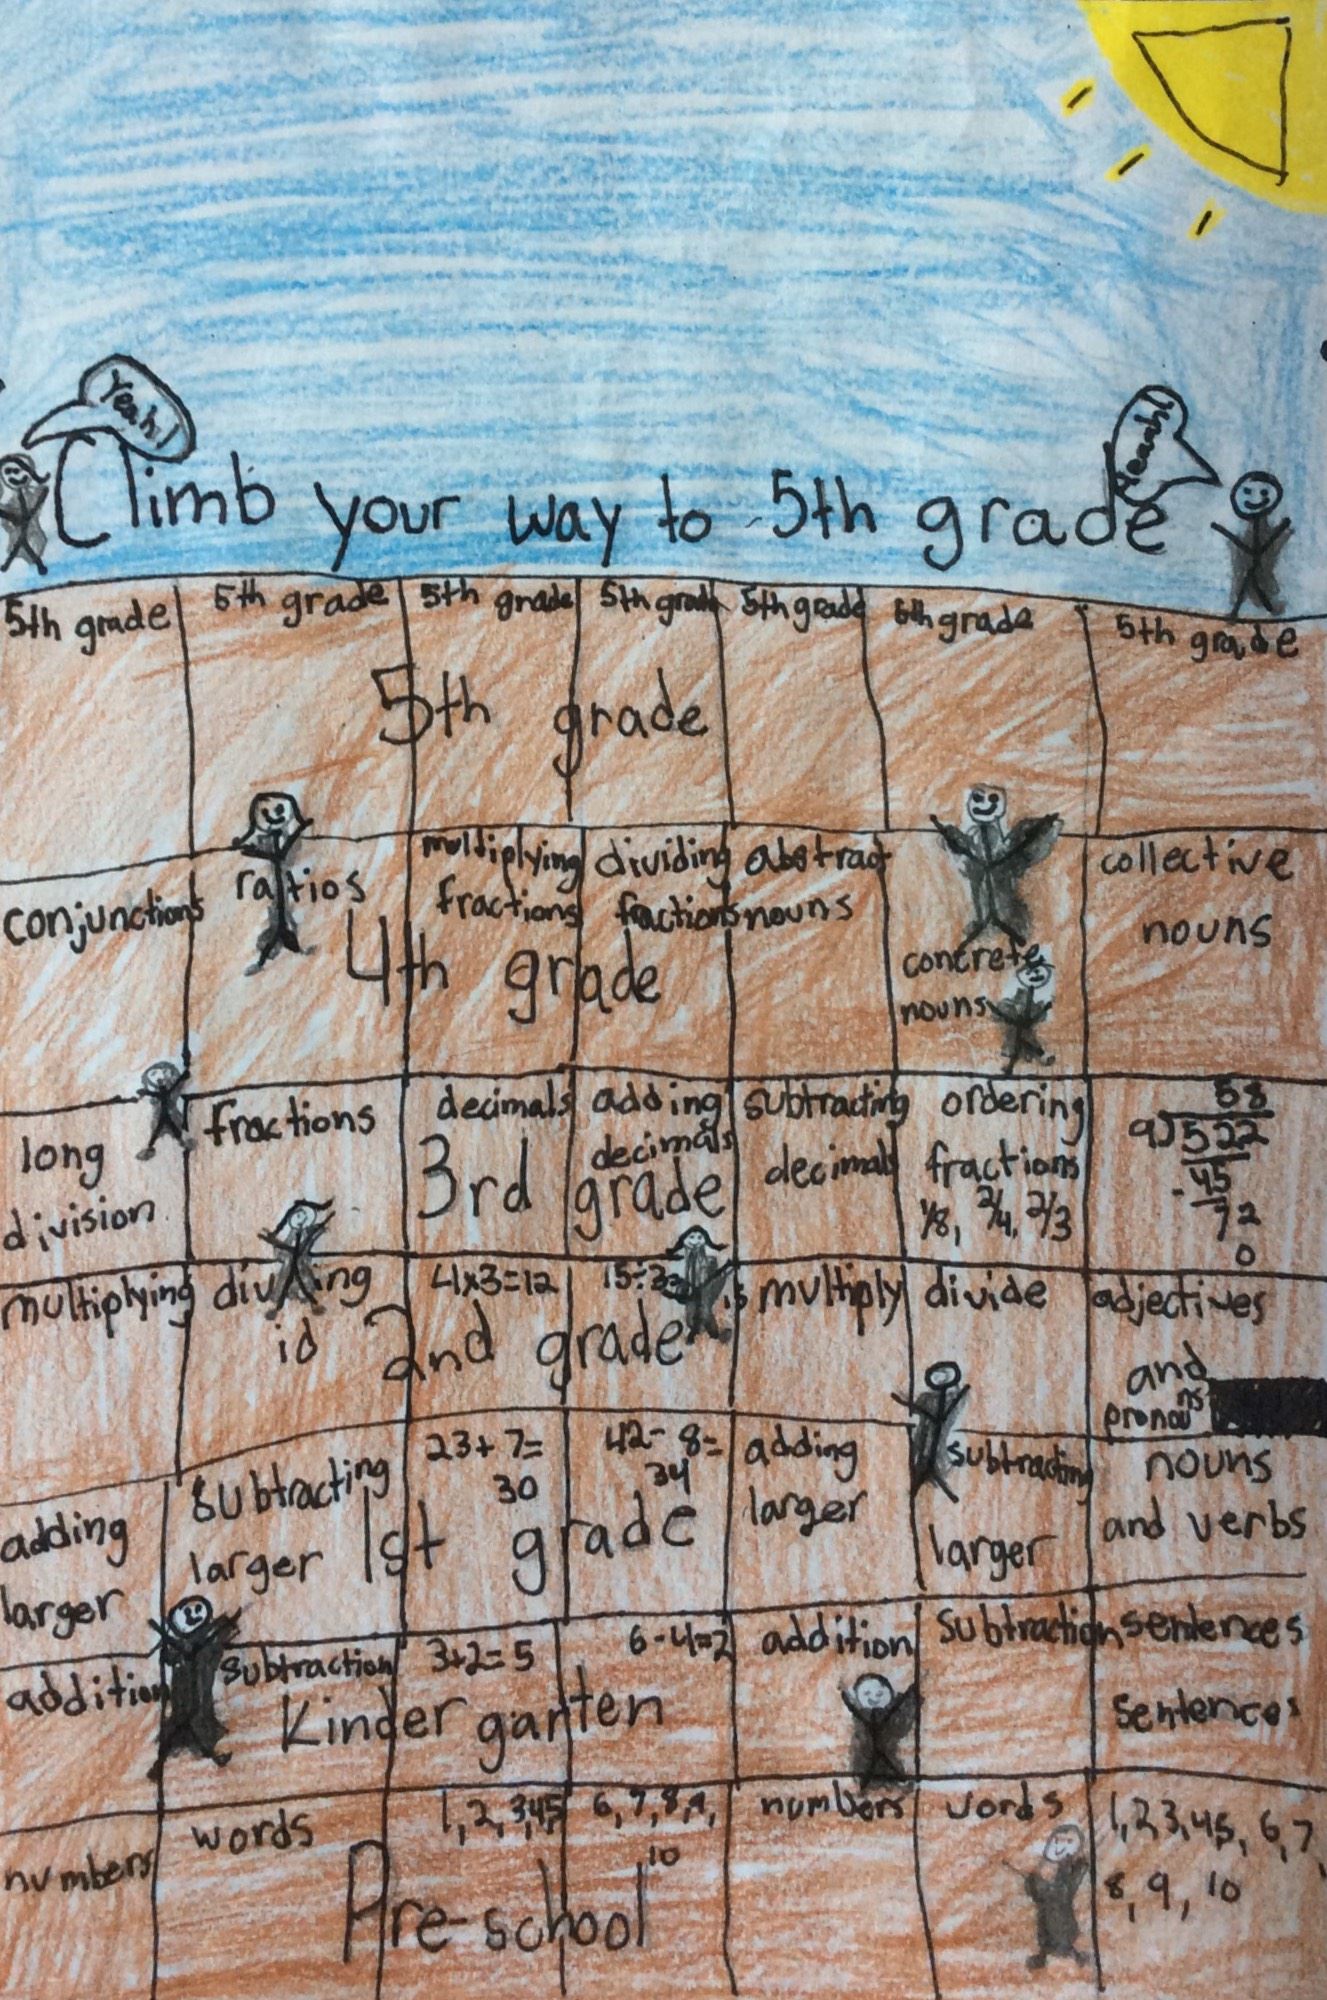 Yeah!
Yeaah!
Climb your way to 5th grade
5th grade 5th grade 5th grade 5th grade 5th grade 5th grade 5th grade
5th grade
conjunctions
ratios
multiplying
fractions
dividing
fractions
abstract
nouns
concrete
nouns
collective
nouns
4th grade
long
division
fractions
decimals
adding
decimals
subtracting
decimals
ordering
fractions
1/8, 2/4, 2/3
58
9)522
-45
72
0
3rd grade
multiplying
4x3=12
multiply
divide
adjectives
and
2nd grade
adding
larger
subtracting
larger
23+7=
30
42-8=
34
adding
larger
subtracting
larger
nouns
and verbs
1st grade
addition
subtraction
3+2=5
6-4=2
addition
subtraction
sentences
sentences
Kindergarten
numbers
words
1,2,3,4,5
6,7,8,9,
10
numbers
words
1,2,3,4,5,6,7,
8,9,10
Pre-school